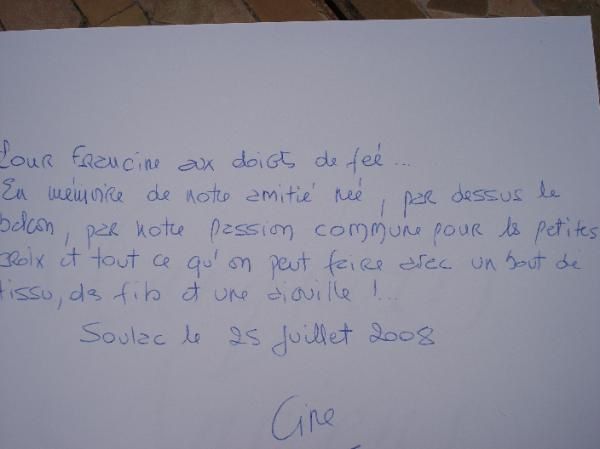 Pour Francine aux doigts de feé...
En mémoire de notre amitié née, par dessus le
balcon, par notre passion commune pour les petites
croix et tout ce qu'on peut faire avec un bout de
tissu, des fils et une aiguille !...
Soulac le 25 Juillet 2008